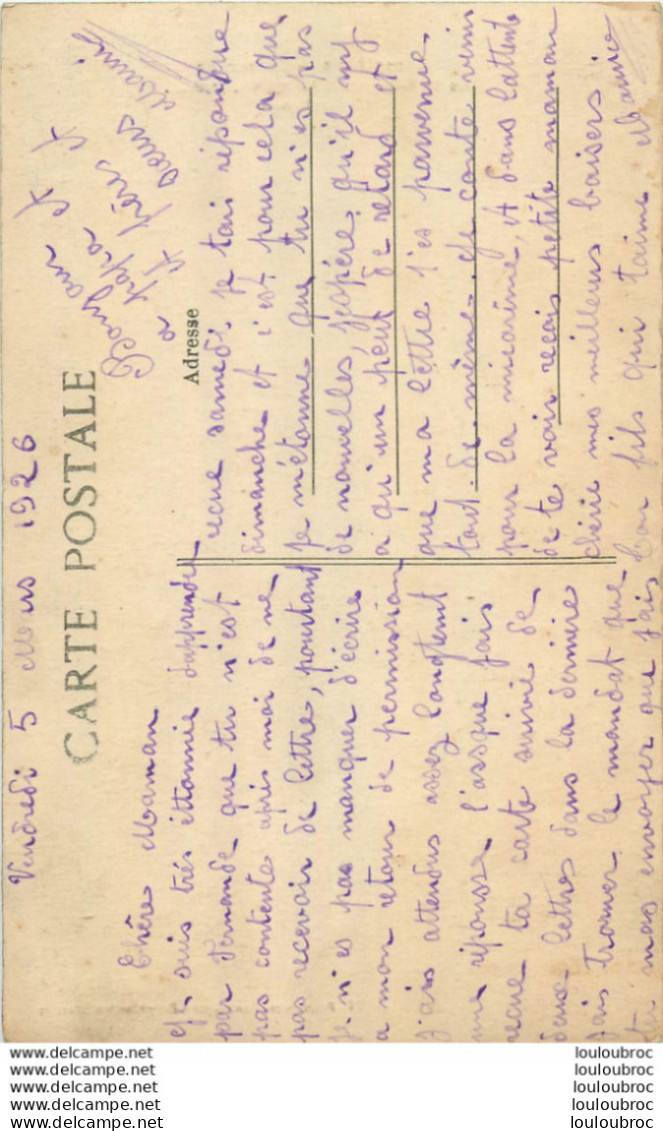 Vendredi 5 Mars 1926
CARTE POSTALE
Chère Maman
Je suis très éttonnée d'apprendre
par Fernande que tu n'est
pas contente après moi de ne
pas recevoir de lettre, pourtant
je n'es pas manquer d'écrire
a mon retour de permission
j'ais attendus assez longtemt
une réponsse l'orsque j'ais
recue ta carte suivie de
deux lettres dans la dernière
j'ais trouver le mandat que
tu mas envoyer que j'ais
Adresse
recue samedi, je tais répondue
dimanche et c'est pour cela que
je m'étonne que tu n'es pas
de nouvelles, j'espère qu'il m'y
a qu'un peut de retard et
que ma lettre t'es parvenue
tout de même. Je conte venir
pour la micarème, et dans l'attente
de te voir recois petite maman
chérie mes meilleurs baisers
ton fils qui t'aime Maurice
Bonjour et
a papa et
et frères et
sœurs Maurice
www.delcampe.net
www.delcampe.net
www.delcampe.net
www.delcampe.net
www.delcampe.net
louloubroc
louloubroc
louloubroc
louloubroc
louloubroc